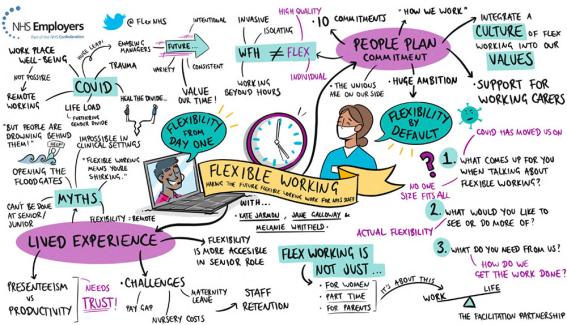 NHS Employers
Part of the NHS Confederation
@ FLEX NHS
WORK PLACE
WELL-BEING
NOT POSSIBLE
REMOTE
WORKING
HUGE LEAP
COVID
TRAUMA
LIFE LOAD
FURTHERING
GENDER DIVIDE
HEAL THE DIVIDE...
ENABLING
MANAGERS
INTENTIONAL
FUTURE...
VARIETY
CONSISTENT
VALUE
OUR TIME!
INVASIVE
ISOLATING
HIGH QUALITY
WFH ≠ FLEX
INDIVIDUAL
WORKING
BEYOND HOURS
10
COMMITMENTS
"HOW WE WORK"
PEOPLE PLAN
COMMITMENT
• THE UNIONS
ARE ON OUR SIDE
• HUGE AMBITION
• INTEGRATE A
CULTURE OF FLEX
WORKING INTO OUR
VALUES
• SUPPORT FOR
WORKING CARERS
"BUT PEOPLE ARE
DROWNING BEHIND
THEM!"
HELP
IMPOSSIBLE IN
CLINICAL SETTINGS
"FLEXIBLE WORKING
MEANS YOU'RE
SHIRKING..."
OPENING THE
FLOODGATES
MYTHS
CAN'T BE DONE
AT SENIOR/
JUNIOR
FLEXIBILITY = REMOTE
FLEXIBILITY
FROM
DAY ONE
FLEXIBILITY
BY
DEFAULT
FLEXIBLE WORKING
MAKING THE FUTURE FLEXIBLE WORKING WORK FOR NHS STAFF
WITH...
• KATE JARMAN • JANE GALLOWAY •
MELANIE WHITFIELD •
?
NO ONE
SIZE FITS ALL
ACTUAL FLEXIBILITY
COVID HAS MOVED US ON
1. WHAT COMES UP FOR YOU
WHEN TALKING ABOUT
FLEXIBLE WORKING?
2. WHAT WOULD YOU LIKE TO
SEE OR DO MORE OF?
3. WHAT DO YOU NEED FROM US?
• HOW DO WE
GET THE WORK DONE?
LIVED EXPERIENCE
PRESENTEEISM
VS
PRODUCTIVITY
NEEDS
TRUST!
• CHALLENGES
PAY GAP
NURSERY COSTS
MATERNITY
LEAVE
STAFF
RETENTION
FLEXIBILITY
IS MORE ACCESIBLE
IN SENIOR ROLE
FLEX WORKING IS
NOT JUST...
• FOR WOMEN
• PART TIME
• FOR PARENTS
IT'S ABOUT THIS
WORK
LIFE
THE FACILITATION PARTNERSHIP